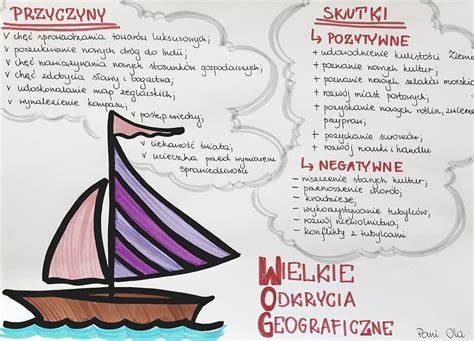 PRZYCZYNY
v chęć sprowadzania towarów luksusowych;
v poszukiwanie nowych dróg do Indii;
v chęć nawiązywania nowych stosunków gospodarczych;
v chęć zdobycia sławy i bogactwa;
v udoskonalanie map żeglarskich;
v wynalezienie kompasu;
v postęp wiedzy;
v ciekawość świata;
v ucieczka przed wymiarem
sprawiedliwości
SKUTKI
↳ POZYTYWNE
+ udowodnienie kulistości Ziemi
+ poznanie nowych kultur;
+ poznanie nowych szlaków morskich
+ rozwój miast portowych;
+ pozyskanie nowych roślin, zwierząt
przypraw;
+ pozyskanie surowców;
+ rozwój nauki i handlu
↳ NEGATYWNE
- niszczenie starych kultur;
- przenoszenie chorób;
- kradzieże;
- wykorzystywanie tubylców;
- rozwój niewolnictwa;
- konflikty z tubylcami
WIELKIE
ODKRYCIA
GEOGRAFICZNE
Pani Ola